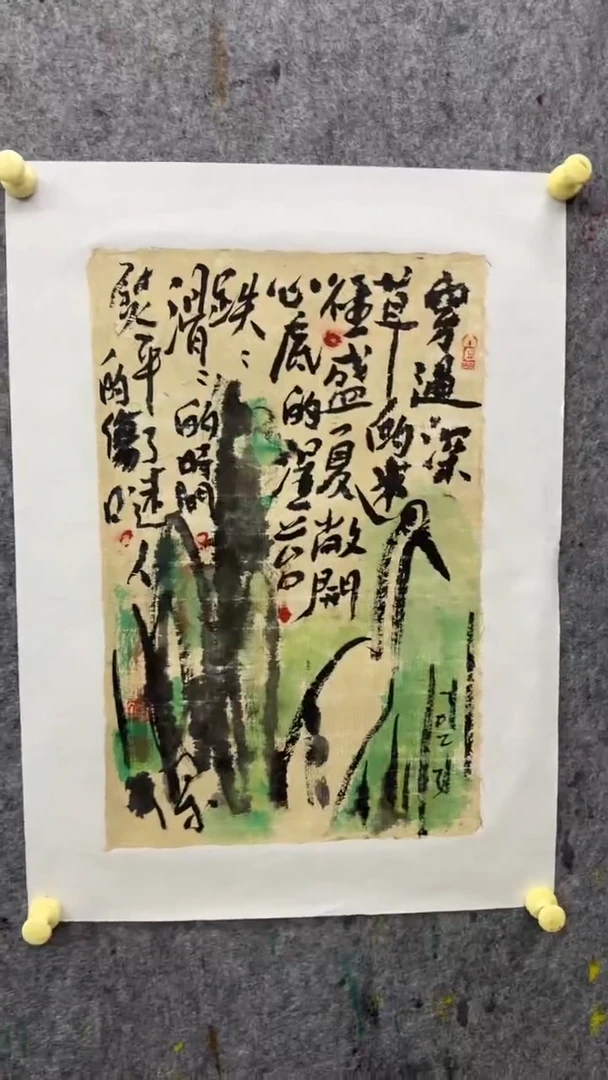 穿過深
草的迷
徑盛夏敞開
心底的溼苔
跌〻
滑〻的時間
熨平了迷人
的傷口